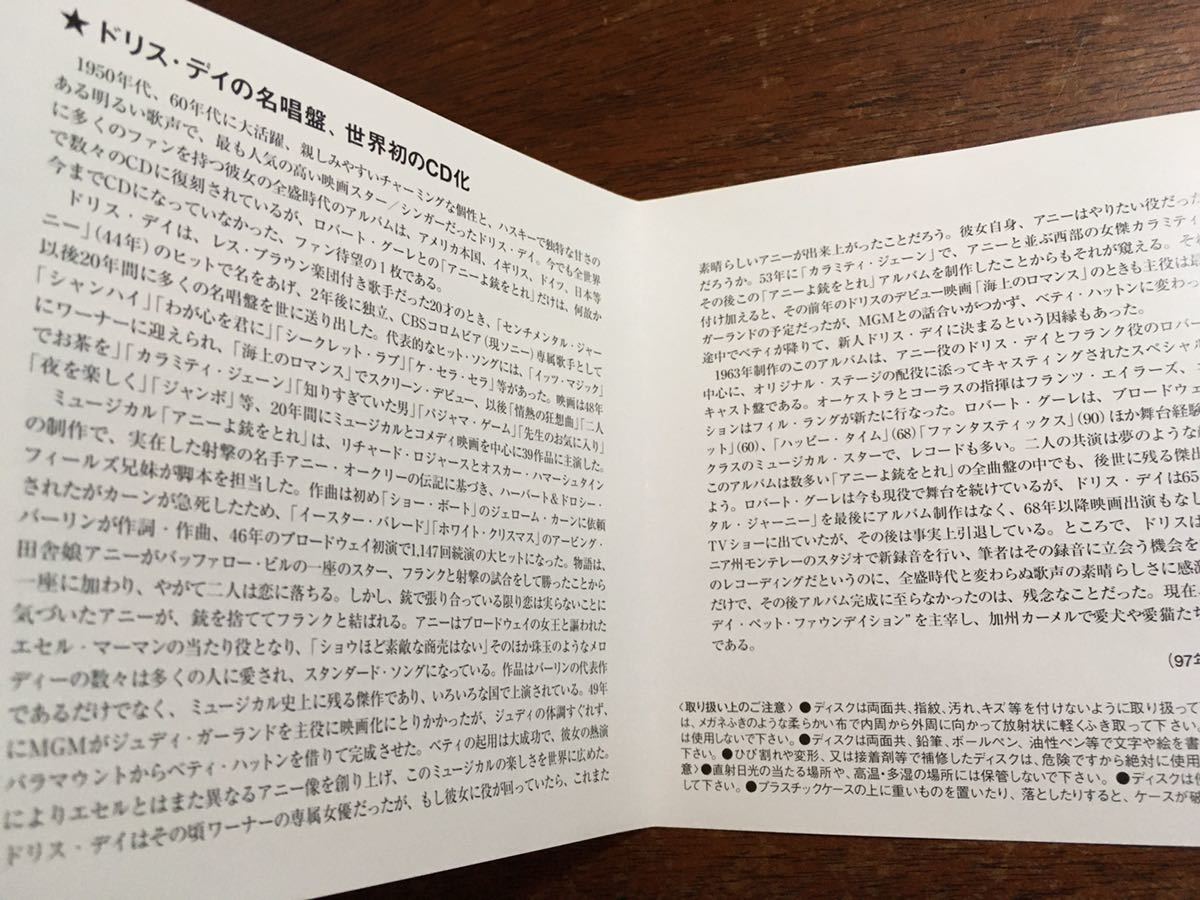 ★ドリス・デイの名唱盤、世界初のCD化
1950年代、60年代に大活躍、親しみやすいチャーミングな個性と、ハスキーで独特な甘さの
ある明るい歌声で、最も人気の高い映画スター／シンガーだったドリス・デイ。今でも全世界
に多くのファンを持つ彼女の全盛時代のアルバムは、アメリカ本国、イギリス、ドイツ、日本等
で数々のCDに復刻されているが、ロバート・グーレとの「アニーよ銃をとれ」だけは、何故か
今までCDになっていなかった、ファン待望の1枚である。
ドリス・デイは、レス・ブラウン楽団付き歌手だった20才のとき、「センチメンタル・ジャー
ニー」(44年)のヒットで名をあげ、2年後に独立、CBSコロムビア(現ソニー)専属歌手として
以後20年間に多くの名唱盤を世に送り出した。代表的なヒット・ソングには、「イッツ・マジック」
「シャンハイ」「わが心を君に」「シークレット・ラブ」「ケ・セラ・セラ」等があった。映画は48年
にワーナーに迎えられ、「海上のロマンス」でスクリーン・デビュー、以後「情熱の狂想曲」「二人
でお茶を」「カラミティ・ジェーン」「知りすぎていた男」「パジャマ・ゲーム」「先生のお気に入り」
「夜を楽しく」「ジャンボ」等、20年間にミュージカルとコメディ映画を中心に39作品に主演した。
ミュージカル「アニーよ銃をとれ」は、リチャード・ロジャースとオスカー・ハマーシュタイン
の制作で、実在した射撃の名手アニー・オークリーの伝記に基づき、ハーバート&ドロシー・
フィールズ兄妹が脚本を担当した。作曲は初め「ショー・ボート」のジェローム・カーンに依頼
されたがカーンが急死したため、「イースター・パレード」「ホワイト・クリスマス」のアーヴィング・
バーリンが作詞・作曲、46年のブロードウェイ初演で1,147回続演の大ヒットになった。物語は、
田舎娘アニーがバッファロー・ビルの一座のスター、フランクと射撃の試合をして勝ったことから
一座に加わり、やがて二人は恋に落ちる。しかし、銃で張り合っている限り恋は実らないことに
気づいたアニーが、銃を捨ててフランクと結ばれる。アニーはブロードウェイの女王と謳われた
エセル・マーマンの当たり役となり、「ショウほど素敵な商売はない」そのほか珠玉のようなメロ
ディーの数々は多くの人に愛され、スタンダード・ソングになっている。作品はバーリンの代表作
であるだけでなく、ミュージカル史上に残る傑作であり、いろいろな国で上演されている。49年
にMGMがジュディ・ガーランドを主役に映画化にとりかかったが、ジュディの体調すぐれず、
パラマウントからベティ・ハットンを借りて完成させた。ベティの起用は大成功で、彼女の熱演
によりエセルとはまた異なるアニー像を創り上げ、このミュージカルの楽しさを世界に広めた。
ドリス・デイはその頃ワーナーの専属女優だったが、もし彼女に役が回っていたら、これまた
素晴らしいアニーが出来上がったことだろう。彼女自身、アニーはやりたい役だった
だろうか。53年に「カラミティ・ジェーン」で、アニーと並ぶ西部の女傑カラミティ
その後この「アニーよ銃をとれ」アルバムを制作したことからもそれが窺える。その
付け加えると、その前年のドリスのデビュー映画「海上のロマンス」のときも主役は最
ガーランドの予定だったが、MGMとの話合いがつかず、ベティ・ハットンに変わっ
途中でベティが降りて、新人ドリス・デイに決まるという因縁もあった。
1963年制作のこのアルバムは、アニー役のドリス・デイとフランク役のロバー
中心に、オリジナル・ステージの配役に添ってキャスティングされたスペシャル
キャスト盤である。オーケストラとコーラスの指揮はフランツ・エイラーズ、
ションはフィル・ラングが新たに行なった。ロバート・グーレは、ブロードウェ
ット」(60)、「ハッピー・タイム」(68)「ファンタスティックス」(90)ほか舞台経験
クラスのミュージカル・スターで、レコードも多い。二人の共演は夢のような
このアルバムは数多い「アニーよ銃をとれ」の全曲盤の中でも、後世に残る傑出
よう。ロバート・グーレは今も現役で舞台を続けているが、ドリス・デイは65
タル・ジャーニー」を最後にアルバム制作はなく、68年以降映画出演もなし
TVショーに出ていたが、その後は事実上引退している。ところで、ドリスは
ニア州モンテレーのスタジオで新録音を行い、筆者はその録音に立会う機会を
のレコーディングだというのに、全盛時代と変わらぬ歌声の素晴らしさに感激
だけで、その後アルバム完成に至らなかったのは、残念なことだった。現在、
デイ・ペット・ファウンデイション"を主宰し、加州カーメルで愛犬や愛猫たち
である。
(97年
〈取り扱い上のご注意〉●ディスクは両面共、指紋、汚れ、キズ等を付けないように取り扱って下
は、メガネふきのような柔らかい布で内周から外周に向かって放射状に軽くふき取って下さい
は使用しないで下さい。●ディスクは両面共、鉛筆、ボールペン、油性ペン等で文字や絵を書
下さい。●ひび割れや変形、又は接着剤等で補修したディスクは、危険ですから絶対に使用
意〉●直射日光の当たる場所や、高温・多湿の場所には保管しないで下さい。●ディスクは使
して下さい。●プラスチックケースの上に重いものを置いたり、落としたりすると、ケースが破